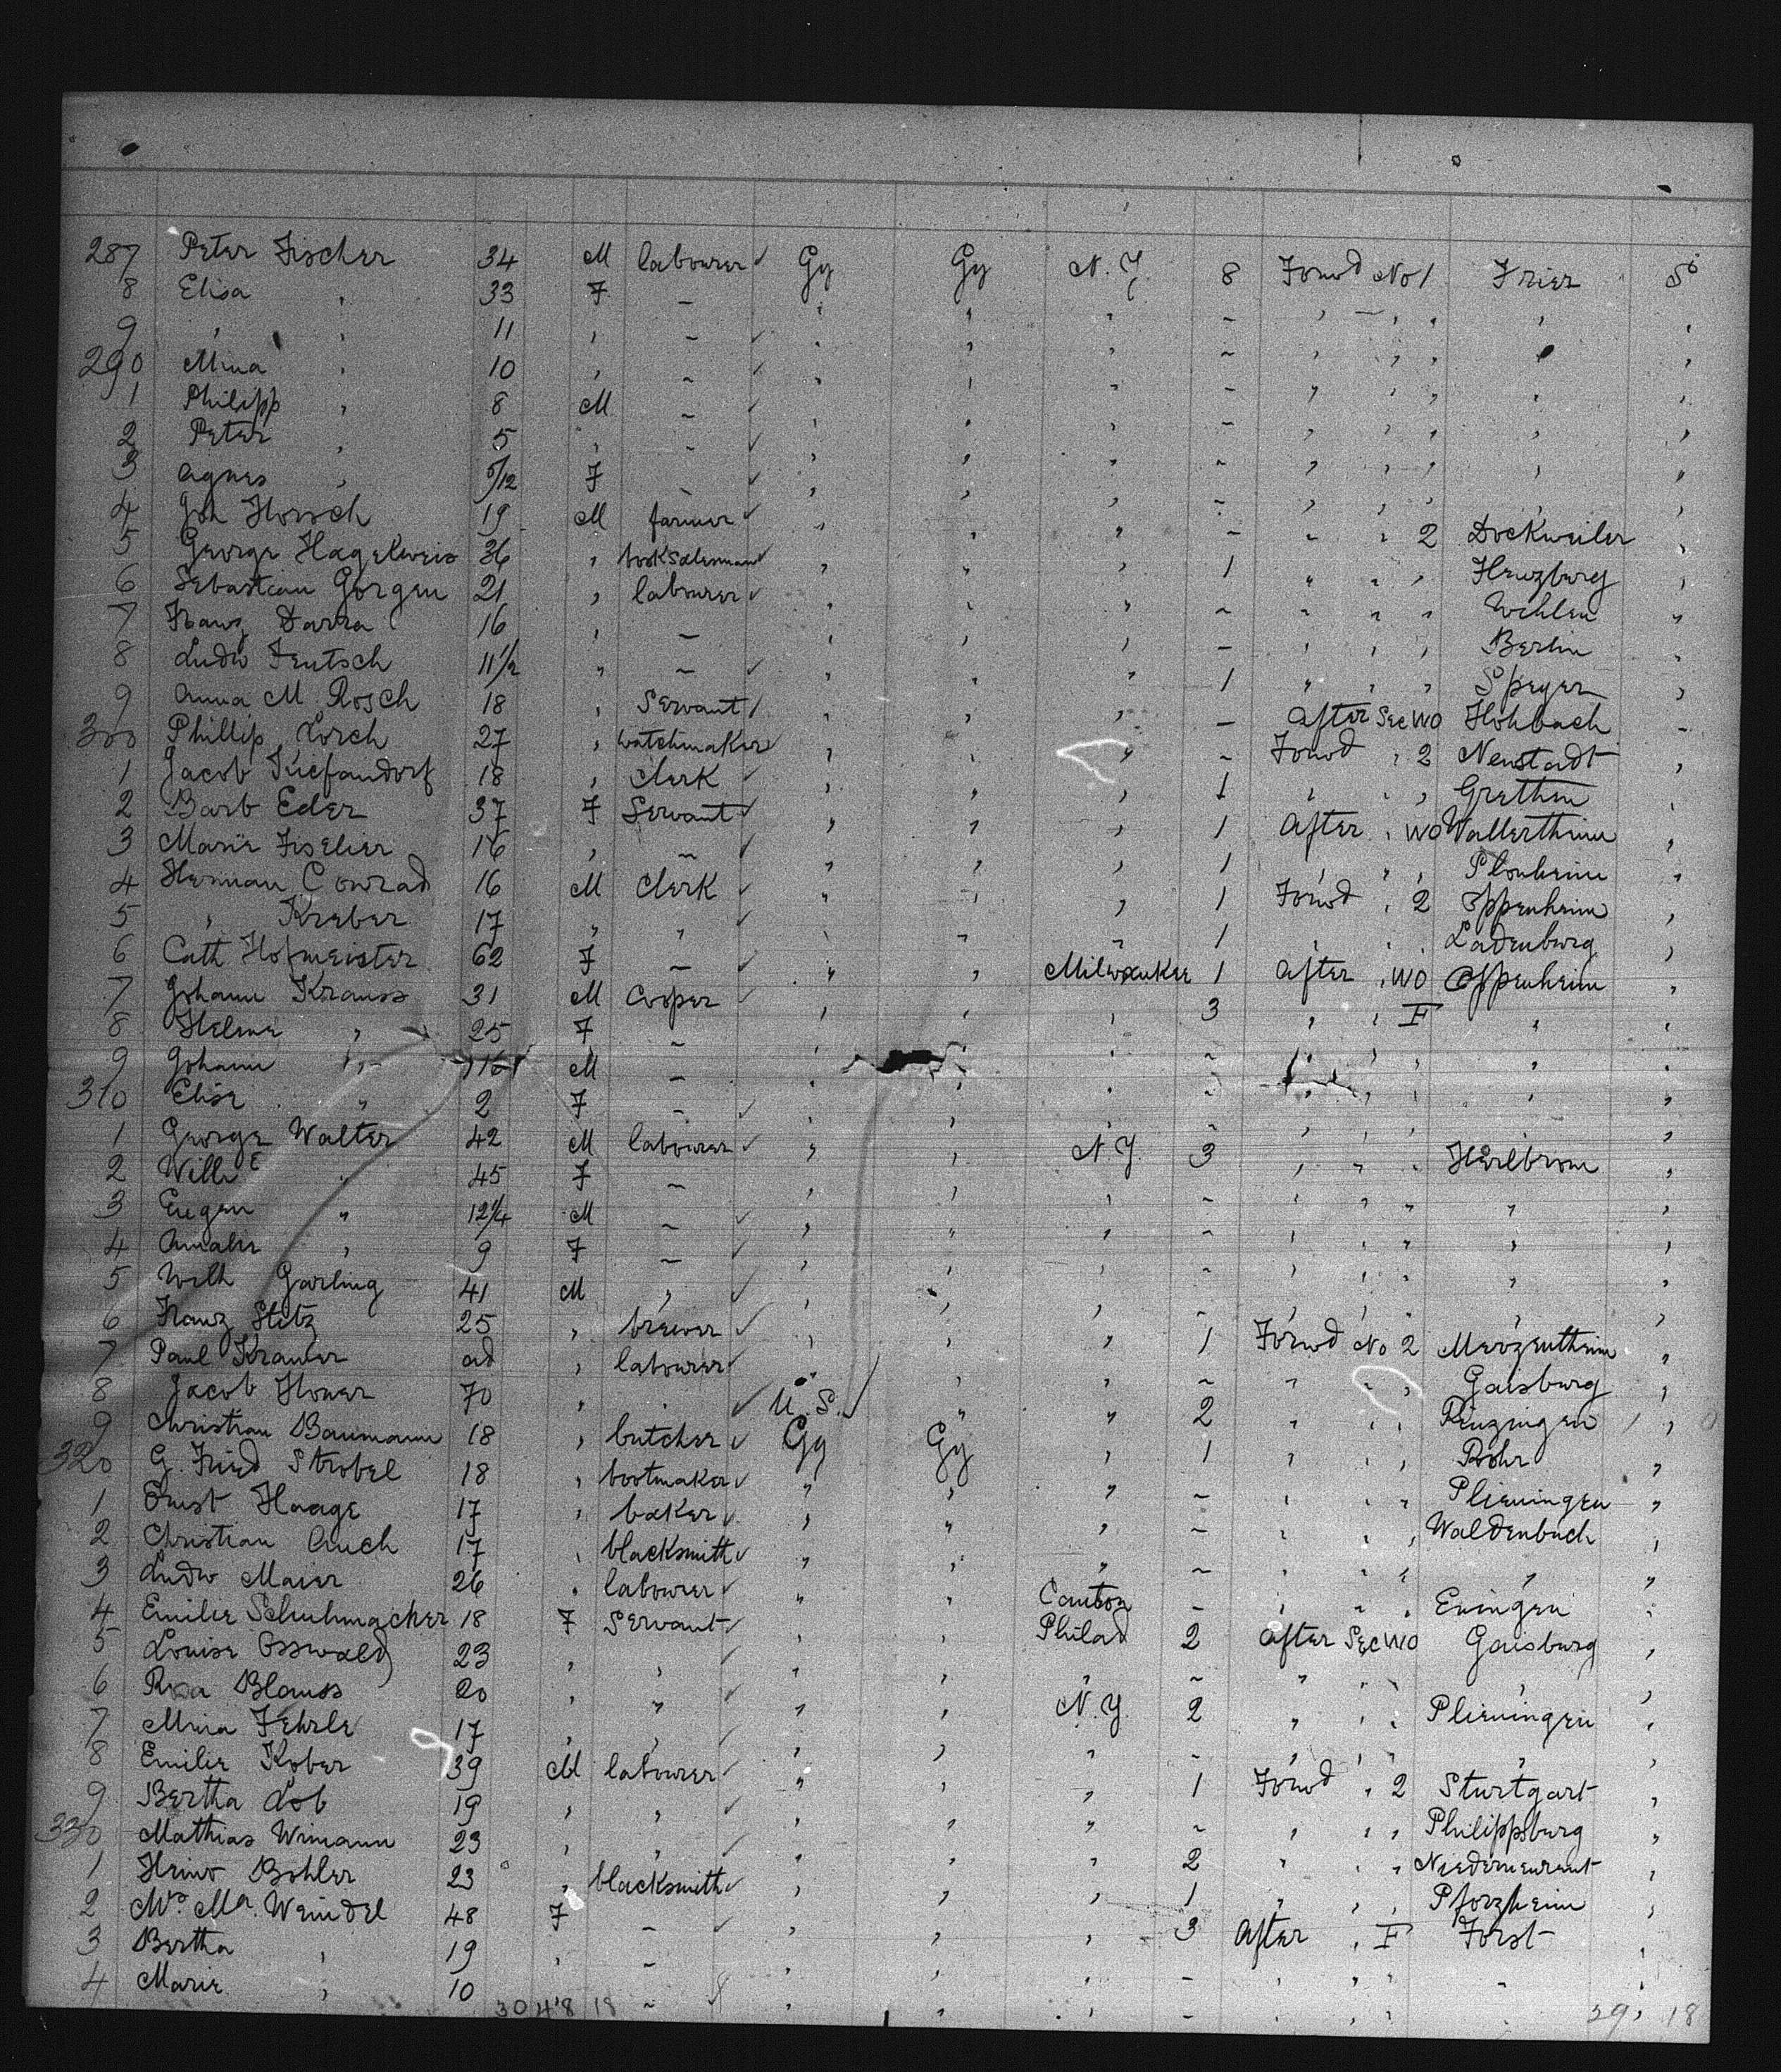 287 Peter Fischer 34 M labourer ✓ Gy Gy N.Y. 8 Forwd No 1 Trier S
8 Elisa " 33 F – " " " – " – " " " "
9 " " 11 " – ✓ " " " – " " " " "
290 Mina " 10 " – ✓ " " " – " " " " "
1 Philipp " 8 M – " " " – " " " " "
2 Peter " 5 " – ✓ " " " – " " " " "
3 Agnes " 5/12 F – ✓ " " " – " " " " "
4 Joh Horsch 19 M farmer ✓ " " " – " " 2 Dockweiler "
5 George Hagelweis 36 " booksalesman ✓ " " " 1 " " " Henzburg "
6 Sebastian Gorgen 21 " labourer ✓ " " " – " " " Wehlen "
7 Franz Darra 16 " – " " " – " " " Berlin "
8 Ludw Jeutsch 11 1/2 " – ✓ " " " 1 " " " Speyer "
9 Anna M Rosch 18 " Servant / " " " – After Sec WO Hohbach "
300 Phillip Lorch 27 " watchmaker ✓ " " " – Forwd " 2 Neustadt "
1 Jacob 18 " Clerk ✓ " " " 1 " " " Grethen "
2 Barb Eder 37 F Servant ✓ " " " 1 After " WO Wallertheim "
3 Marie Fiselier 16 " – ✓ " " " 1 " " " Plonheim "
4 Herman Conrad 16 M Clerk ✓ " " " 1 Forwd " 2 Oppenheim "
5 " Kreber 17 " " ✓ " " " 1 " " " Ladenburg "
6 Cath Hofmeister 62 F – ✓ " " Milwaukee 1 After " WO Oppenheim "
7 Johann Krauss 31 M Cooper ✓ " " " 3 " " F " "
8 Helene " 25 F – " " " – " " " " "
9 Johann " M – " " " – " " " " "
310 Elise " 2 F – ✓ " " " – " " " " "
1 George Walter 42 M labourer ✓ " " N.Y. 3 " " " Heilbronn "
2 Wilhe " 45 F – " " " – " " " " "
3 Eugen " 12 1/4 M – ✓ " " " – " " " " "
4 Amalie " 9 F – ✓ " " " – " " " " "
5 Wilh Garling 41 M " ✓ " " " – " " " " "
6 Franz Stitz 25 " brewer ✓ " " " 1 Forwd No 2 Merzentheim "
7 Paul Kramer ad " labourer ✓ " " " – " " " Gaisburg "
8 Jacob Homer 70 " " ✓ U.S. / " " 2 " " " "
9 Christian Baumann 18 " butcher ✓ Gy Gy " 1 " " " Rohr "
320 G. Fried Strobel 18 " bootmaker ✓ " " " – " " " Plieningen "
1 Ernst Haage 17 " baker ✓ " " " – " " " Waldenbuch "
2 Christian Auch 17 " blacksmith ✓ " " " – " " " " "
3 Ludw Maier 26 " labourer ✓ " " Canton – " " " Eningen "
4 Emilie Schuhmacher 18 F Servant ✓ " " Philad 2 After Sec WO Gaisburg "
5 Louise Osswald 23 " " ✓ " " " – " " " " "
6 Rosa Blauss 20 " " ✓ " " N.Y. 2 " " " Plieningen "
7 Mina Fehrle 17 " " ✓ " " " – " " " " "
8 Emilie Kober 39 M labourer ✓ " " " 1 Forwd " 2 Sturtgart "
9 Bertha Lob 19 " " ✓ " " " – " " " Philippsburg "
330 Mathias Wimann 23 " " ✓ " " " 2 " " " "
1 Heinr Bohler 23 " blacksmith ✓ " " " 1 " " " Pforzheim "
2 Mrs Ma. Weindel 48 F – ✓ " " " 3 After " F Forst "
3 Bertha " 19 " – " " " – " " " " "
4 Marie " 10 – " " " – " " " "
30 4 8 18 29, 18